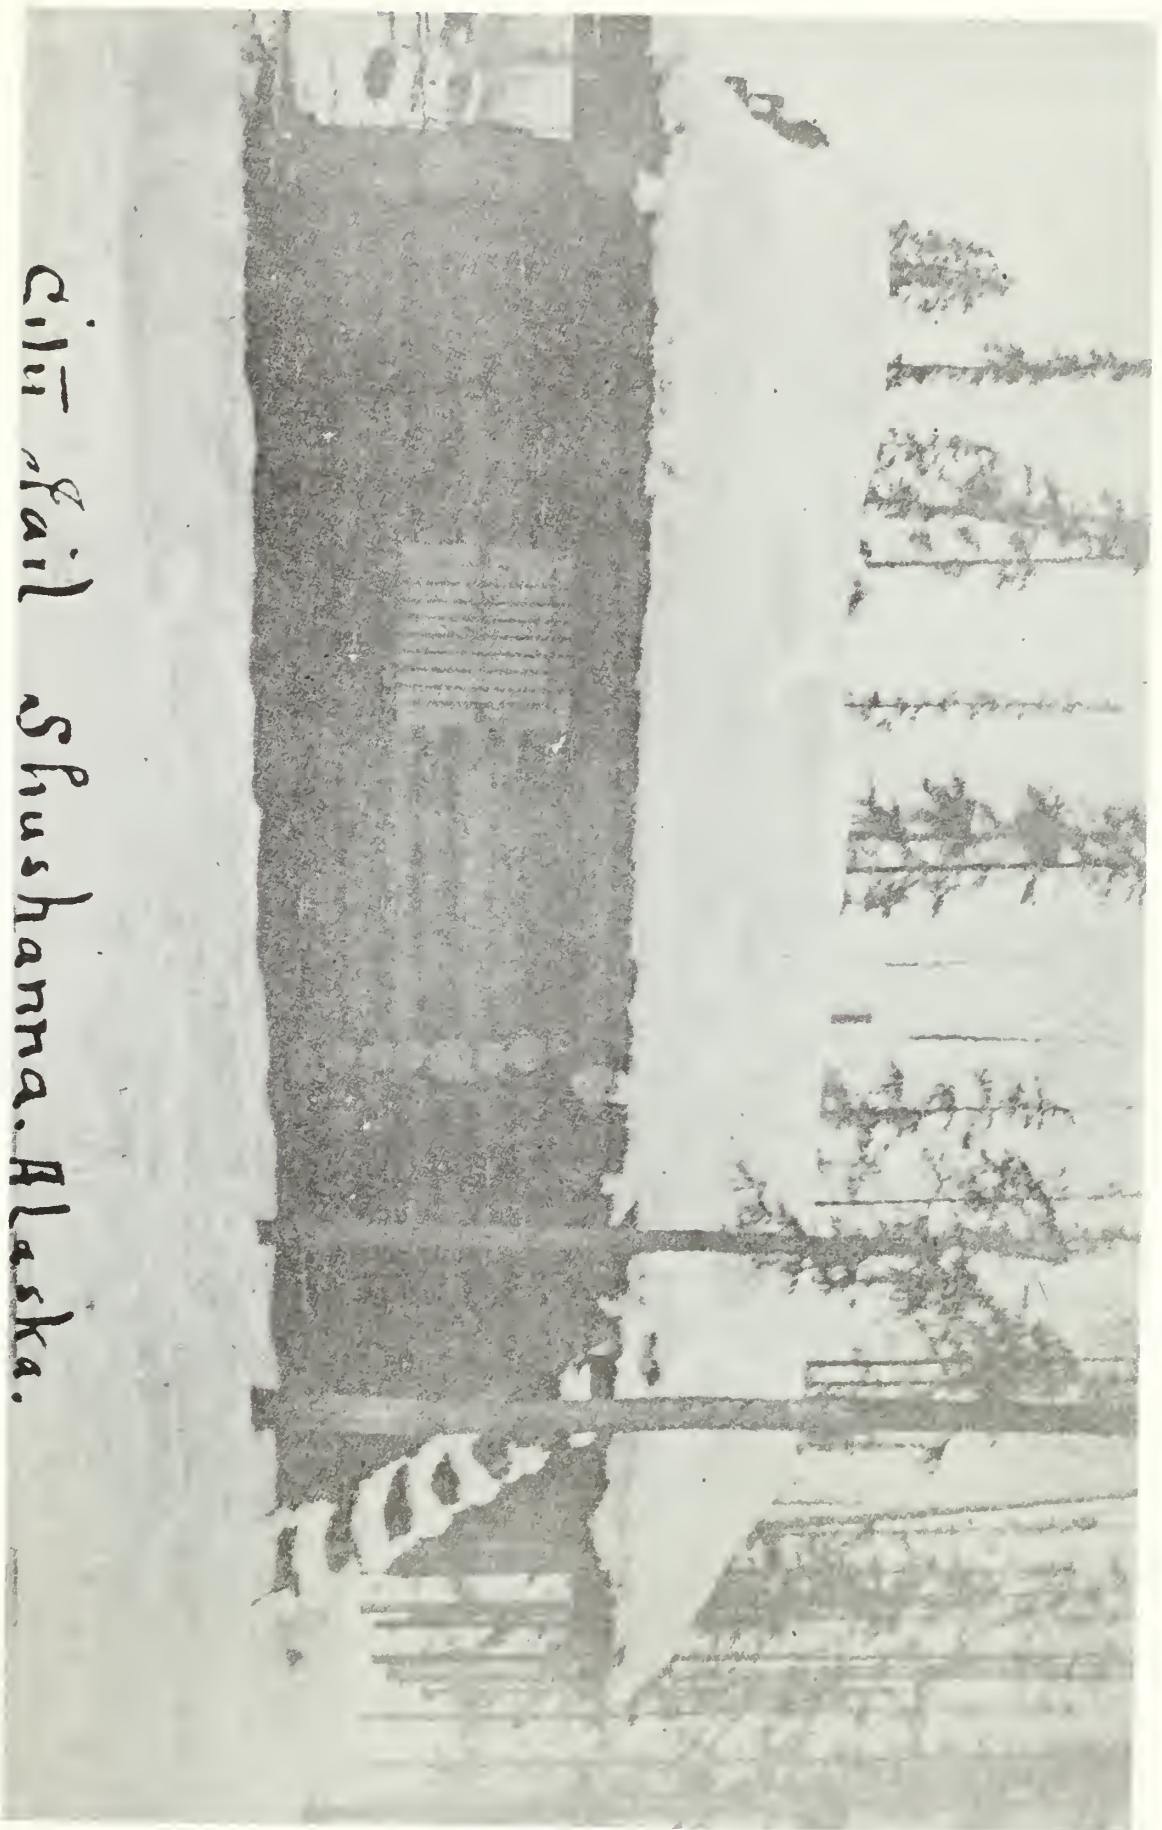 City Jail Shushanna. Alaska.